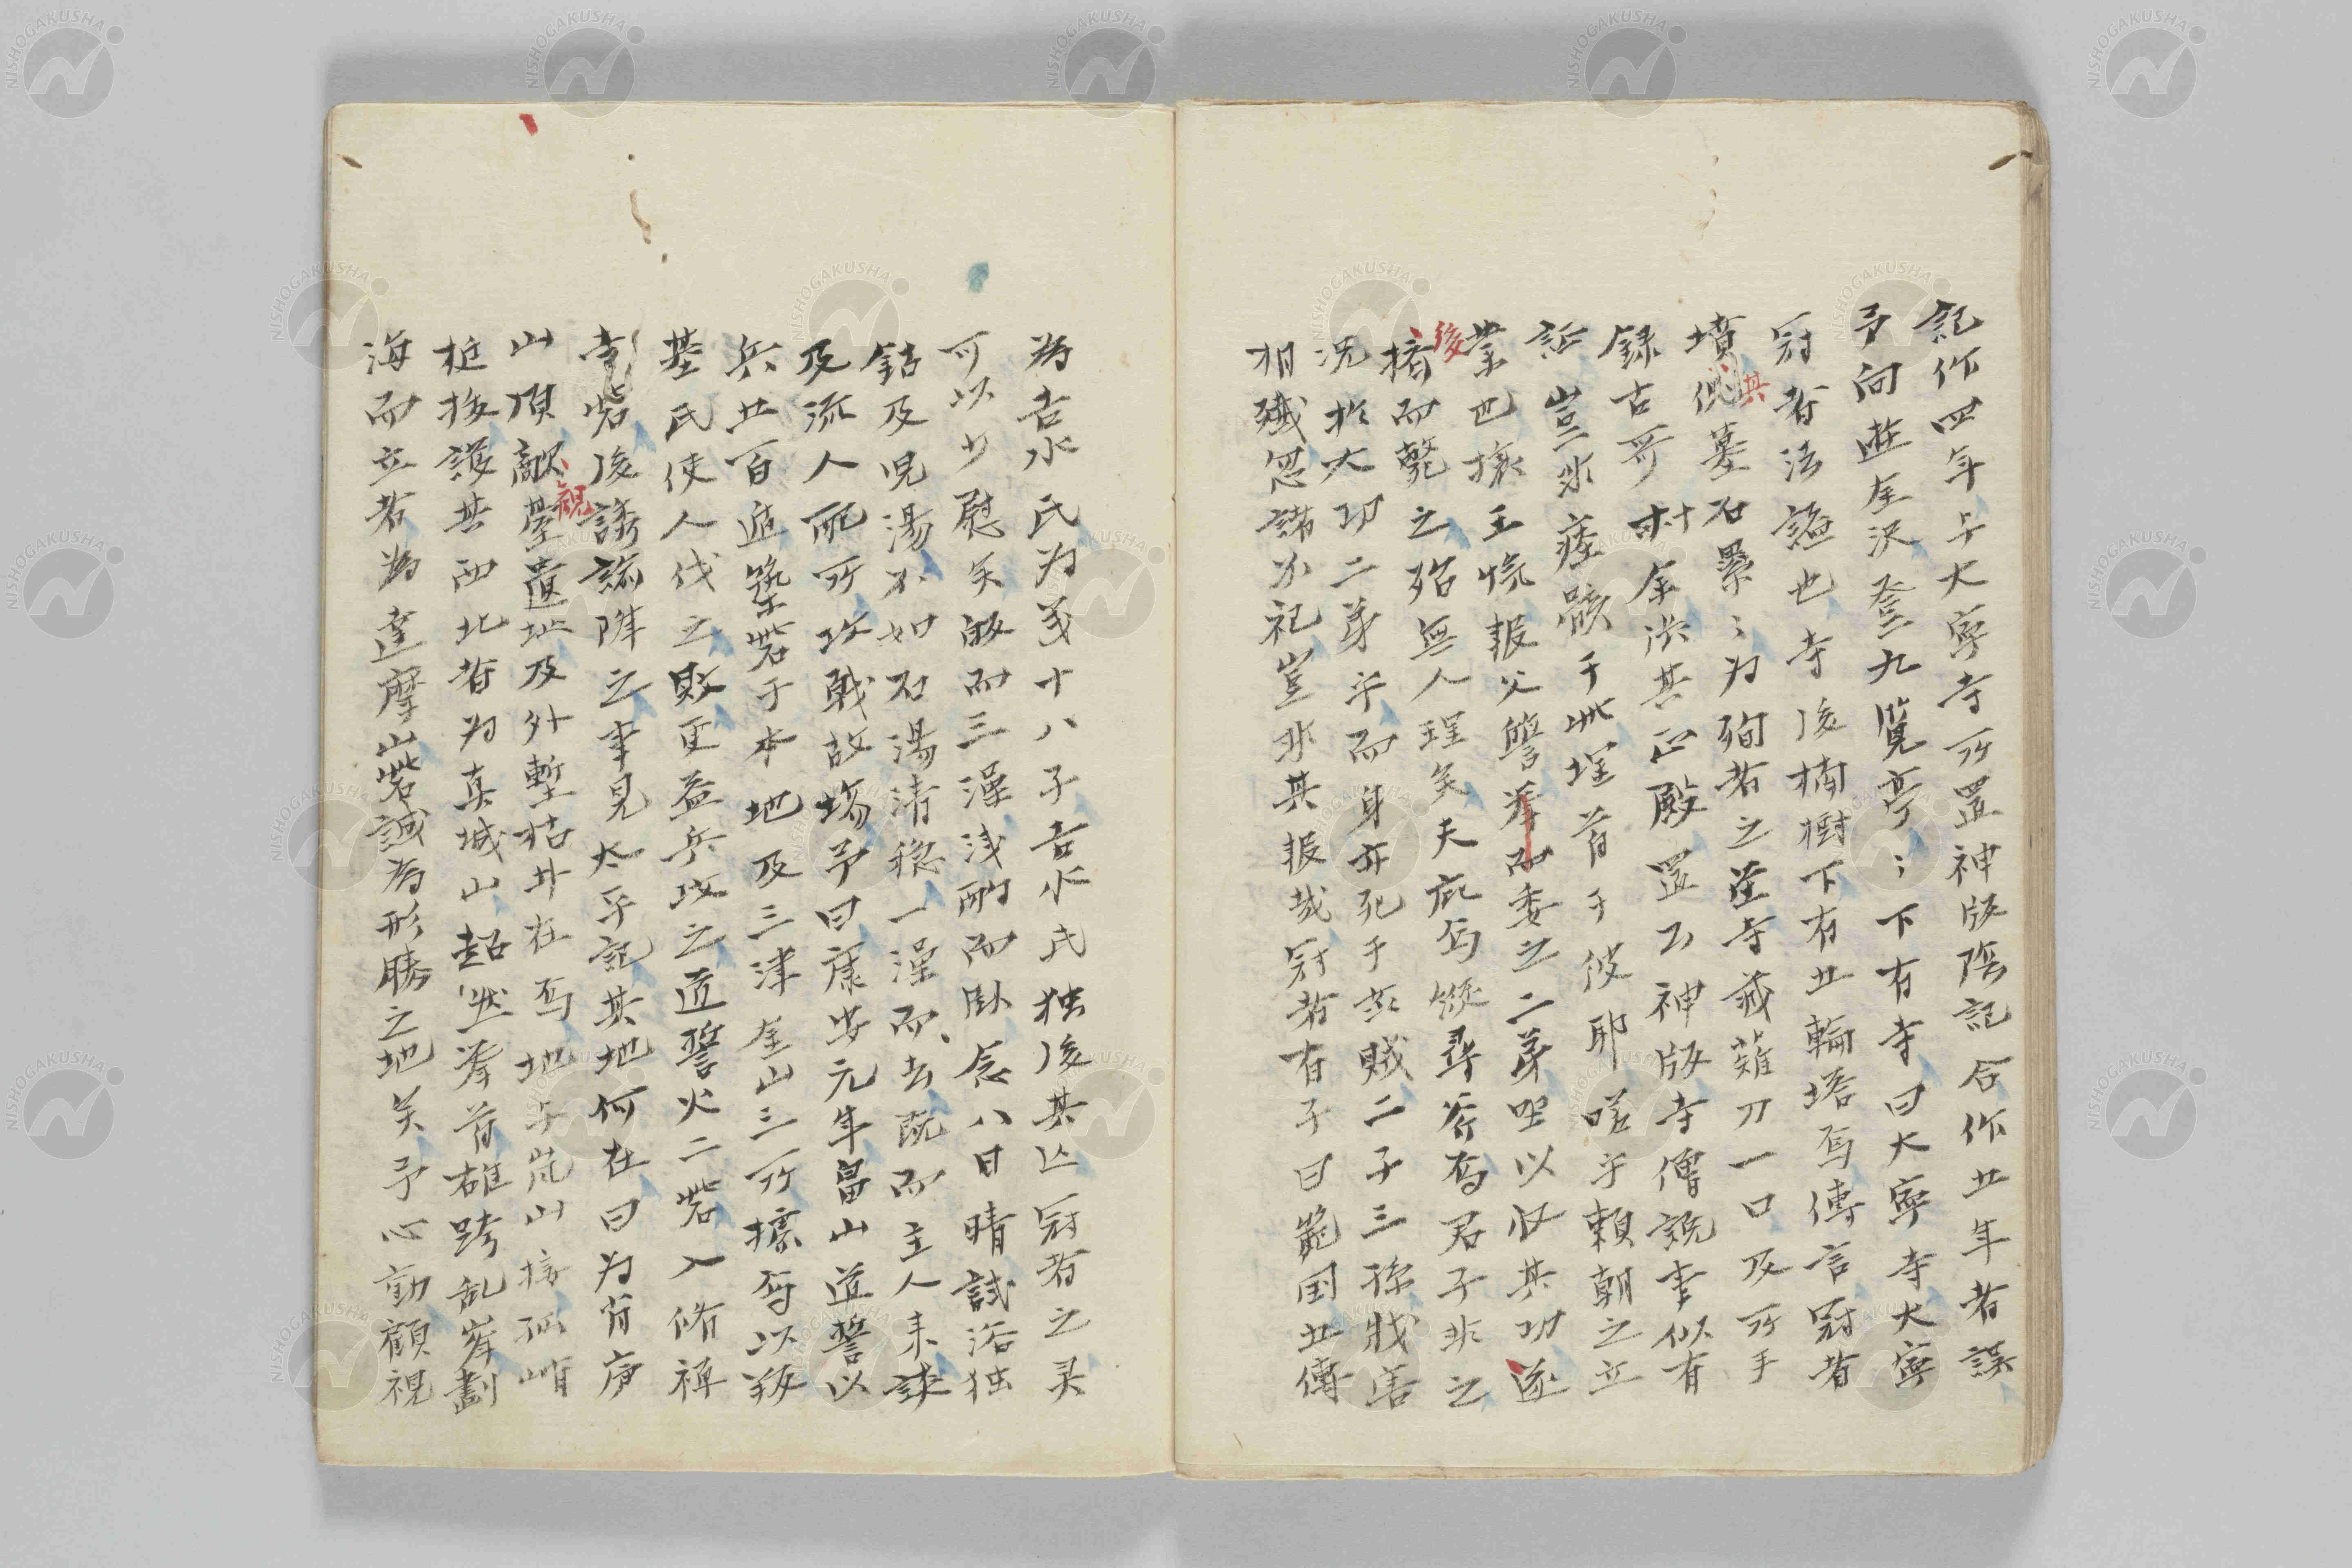 記作四年与大寧寺所置神版陰記合作廿年者誤
予向遊金沢登九覧亭〻下有寺曰大寧寺大寧
冠者法謚也寺後楠樹下有廿輪塔焉傳言冠者
墳側墓石累〻为殉者之茔寺蔵薙刀一口及所手
其
録古哥村余洪其正殿置公神版寺僧説事似有
証豈非瘞骸于此埋首于彼耶嗟乎頼朝之立
業也攘王愾報父讐举而委之二弟坐以収其功遂
後
擠而斃之殆無人理矣夫庇焉縦尋斧焉君子非之
况於大功二弟乎而身亦死乎亦賊二子三孫戕害
相殲忽諸不祀豈非其報哉冠者有子曰範国廿傳
为吉水氏为义十八子吉水氏独後其亡冠者之灵
可以少慰矣飯而三漫浅酌而臥念八日晴試浴独
鈷及児湯不如石湯清穏一漫而去既而主人来談
及流人配所攻戦故場予曰康安元年畠山道誓以
兵廿百遁築砦于本地及三津金山三所據守以叛
基氏使人伐之敗更益兵攻之道誓火二砦入脩禅
寺砦後誘謡陣之事見太平記其地何在曰为背庚
山頂敵臺遺址及外塹枯井在焉地与荒山接孤峭
視
挺抜護其西北者为真城山超然峯背雄跨乱峯劃
海而立者为達摩山砦誠为形勝之地矣予心動顧視
NISHOGAKUSHA